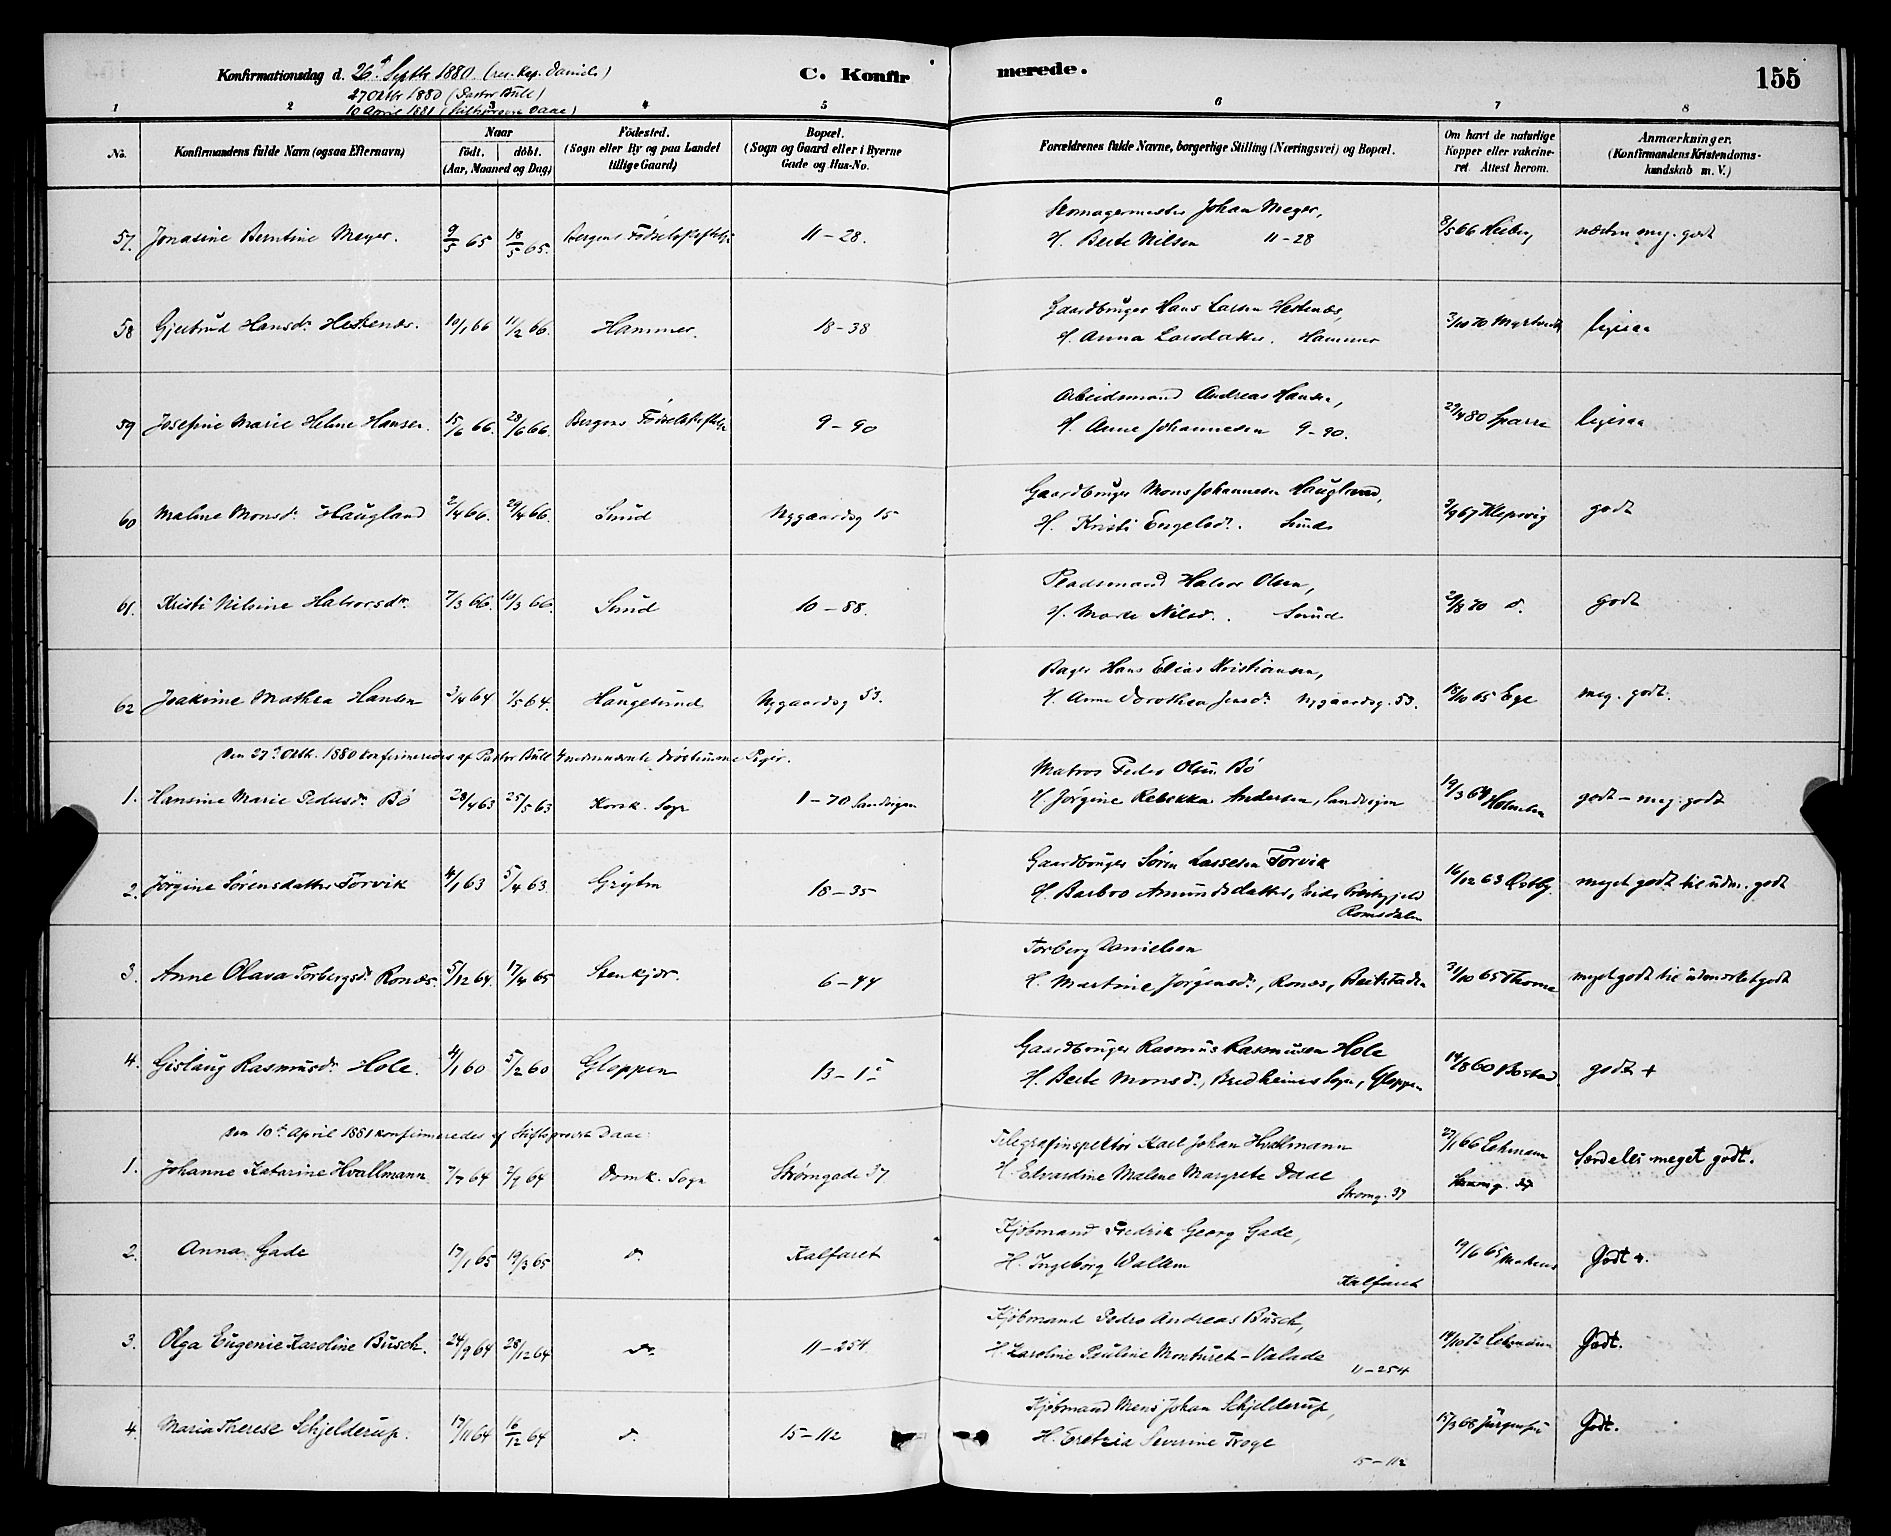 Konfirmationsdag d. 26de Septbr 1880 (res. Kap. Daniels) C. Konfirmerede. 155
27 Oktbr 1880 (Pastor Bull)
10 April 1881 (Stiftsprovst Daae)
1 2 3 4 5 6 7 8
No. Konfirmandens fulde Navn (ogsaa Efternavn) Naar födt. döbt. (Aar, Maaned og Dag) Födested. (Sogn eller By og paa Landet tillige Gaard) Bopæl. (Sogn og Gaard eller i Byerne Gade og Hus-No. Forældrenes fulde Navne, borgerlige Stilling (Næringsvei) og Bopæl. Om havt de naturlige Kopper eller vakcineret Attest herom. Anmærkninger. (Konfirmandens Kristendomskundskab m. V.)
57. Jonasine Berntine Meyer. 9/5 65 18/5 65. Bergens Födselsstiftelse 11-28. Skomagermester Johan Meyer,
H. Berte Nilsen 11-28 8/5 66 Heiberg næsten meg. godt
58 Gjertrud Hansdr Hestenæs. 10/1 66 11/2 66. Hammer. 18-38 Gaardbruger Hans Larsen Hestenæs,
H. Anna Larsdatter. Hammer 3/10 70 Myrtvedt ligesaa
59 Josefine Marie Helene Hansen. 15/6 66. 28/6 66. Bergens Födselsstiftelse 9-90 Arbeidsmand Andreas Hansen,
H. Anne Johannesen 9-90. 29/4 80 Sparre ligesaa
60 Malene Monsdr Haugland 2/4 66. 29/4 66. Sund Nygaardsg 15 Gaardbruger Mons Johannesen Haugland,
H. Kristi Engelsdr. Sund 3/9 67 Klepsvig godt
61. Kristi Nilsine Halvorsdr. 7/3 66. 10/3 66 Sund 10-88. Pladsmand Halvor Olsen,
H. Marte Nilsdr. Sund 2/8 70 do. godt
62 Joakime Mathea Hansen 3/4 64 1/5 64. Haugesund Nygaardsg 53. Bager Hans Elias Kristiansen,
H. Anne Dorothea Jensdr. Nygaardsg. 53. 18/10 65 Ege meg. godt.
Den 27de Oktb. 1880 konfirmeredes af Pastor Bull 4 nedennævnte døvstumme Piger.
1. Hansine Marie Pedersdr. Bö 28/4 63 25/5 63 Korsk. Sogn 1-70 Sandvigen Matros Peder Olsen Bö
H. Jørgine Rebekka Andersen, Sandvigen 19/3 64 Holmsen godt - meg. godt
2. Jörgine Sörensdatter Torvik 4/1 63 5/4 63 Gryten 18-35 Gaardbruger Sören Lassesen Torvik
H. Barbro Amundsdatter, Eids Præstegjeld
Romsdalen 16/12 63 Østby. meget godt til udm. godt
3. Anne Olava Torbergsdr. Ronæs. 5/12 64. 17/4 65 Stenkjær. 6-44 Torberg Danielsen
H. Martine Jörgensdr, Ronæs, Beitstaden 31/10 65 Thorne meget godt til udmærket godt
4. Gislaug Rasmusdr. Hole. 4/1 60 5/2 60 Gloppen 13-1c Gaardbruger Rasmus Rasmussen Hole
H. Berte Monsdr, Bredheims Sogn, Gloppen 14/8 60 godt +
Den 10de April 1881 konfirmeredes af Stiftsprovst Daae:
1. Johanne Katarine Hvallmann 7/7 64 2/9 64 Domk. Sogn Strömgade 37 Telegrafinspektör Karl Johan Hvallmann
H. Edvardine Malene Margrete Daae
Strömg. 37 27/1 66 Lehmann
Strömg. 37 Særdeles meget godt.
2. Anna Gade 17/1 65 19/3 65 do. Kalfaret Kjöbmand Fredrik Georg Gade,
H. Ingeborg Wallem
Kalfaret 19/6 65 Godt +.
3. Olga Eugenie Karoline Busch. 24/9 64 28/12 64 do. 11-254. Kjöbmand Pedro Andreas Busch,
H. Karoline Pauline Monturet-Valade
11-254 14/10 72 Lehmann Godt.
4. Maria Therese Schjelderup. 17/11 64 16/12 64 do. 15-112 Kjöbmand Mens Johan Schjelderup,
H. Severine Troye
15-112 15/3 68 Godt.